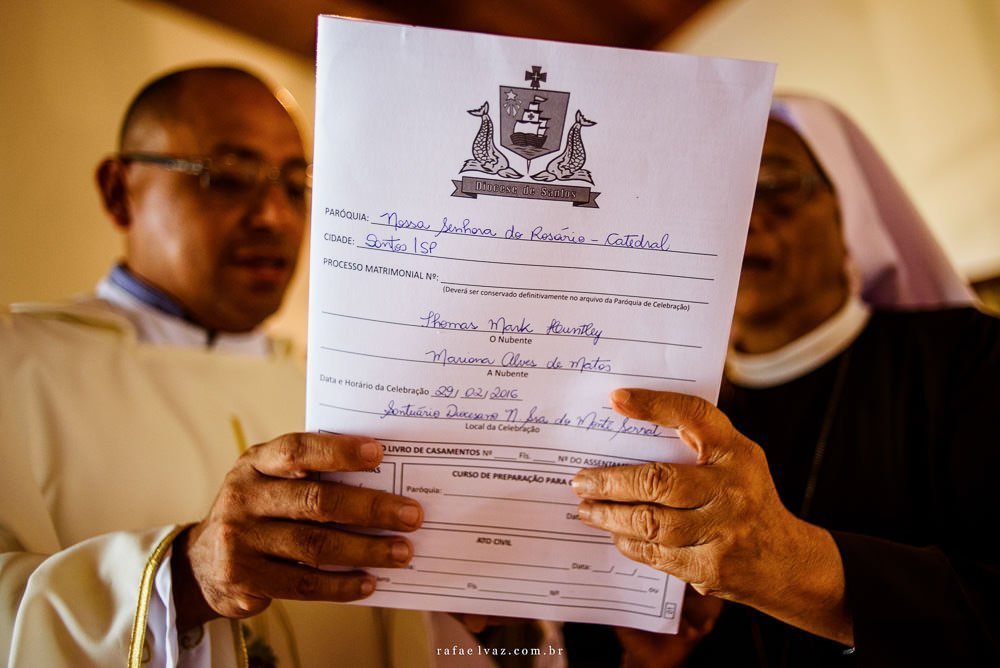 Diocese de Santos
PARÓQUIA: Nossa Senhora do Rosário - Catedral
CIDADE: Santos / SP
PROCESSO MATRIMONIAL Nº:
(Deverá ser conservado definitivamente no arquivo da Paróquia de Celebração)
Thomas Mark Huntley
O Nubente
Mariana Alves de Matos
A Nubente
Data e Horário da Celebração 29/02/2016
Santuário Diocesano N. Sra do Monte Serrat
Local da Celebração
O LIVRO DE CASAMENTOS Nº Fls. Nº DO ASSENTAM
CURSO DE PREPARAÇÃO PARA
Paróquia:
ATO CIVIL
Data: __/__/__
Fls. Nº
rafaelvaz.com.br